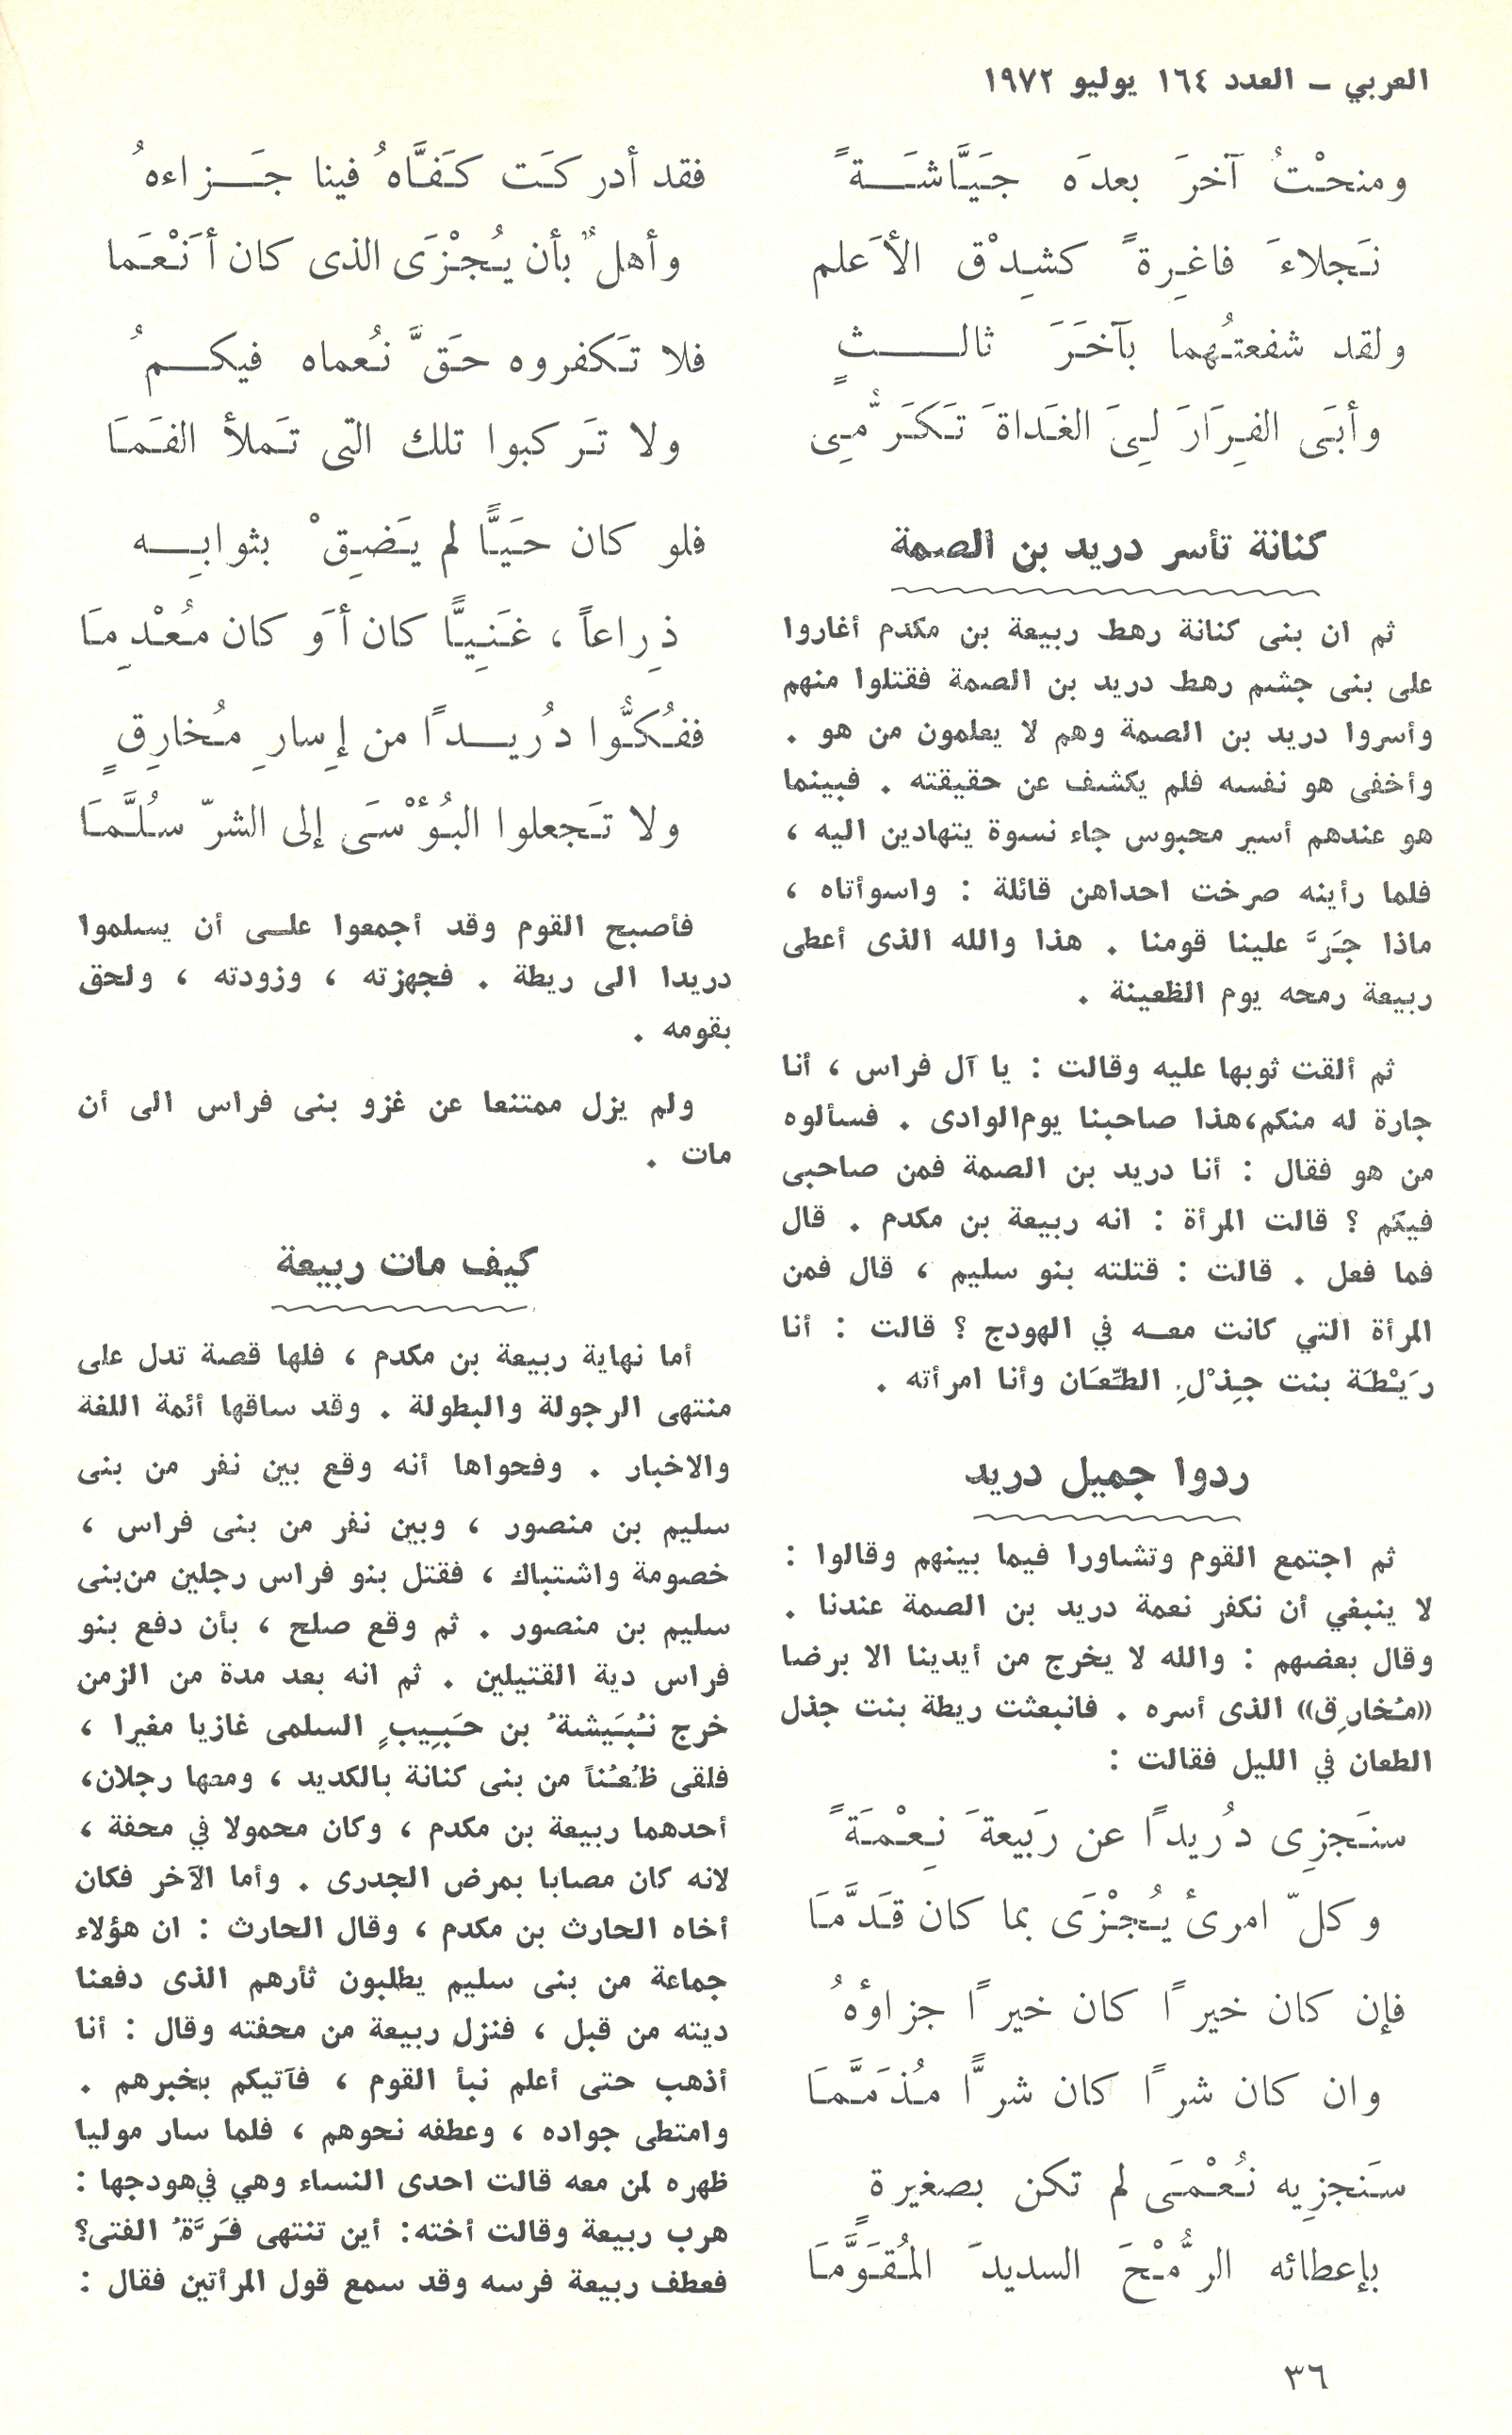 العربي – العدد ١٦٤ يوليو ١٩٧٢
ومنحْتُ آخرَ بعدَه جَيَّاشَةً
نَجلاءَ فاغِرةً كشِدْق الأَعلم
ولقد شفعتُهما بآخَرَ ثالثٍ
وأبَى الفِرَارَ لِىَ الغَداةَ تَكَرُّمِى
كنانة تأسر دريد بن الصمة
ثم ان بنى كنانة رهط ربيعة بن مكدم أغاروا
على بنى جشم رهط دريد بن الصمة فقتلوا منهم
وأسروا دريد بن الصمة وهم لا يعلمون من هو .
وأخفى هو نفسه فلم يكشف عن حقيقته . فبينما
هو عندهم أسير محبوس جاء نسوة يتهادين اليه ،
فلما رأينه صرخت احداهن قائلة : واسوأتاه ،
ماذا جَرَّ علينا قومنا . هذا والله الذى أعطى
ربيعة رمحه يوم الظعينة .
ثم ألقت ثوبها عليه وقالت : يا آل فراس ، أنا
جارة له منكم،هذا صاحبنا يوم الوادى . فسألوه
من هو فقال : أنا دريد بن الصمة فمن صاحبى
فيكم ؟ قالت المرأة : انه ربيعة بن مكدم . قال
فما فعل . قالت : قتلته بنو سليم ، قال فمن
المرأة التي كانت معه في الهودج ؟ قالت : أنا
رَيْطَة بنت جِذْلِ الطِّعَان وأنا امرأته .
ردوا جميل دريد
ثم اجتمع القوم وتشاورا فيما بينهم وقالوا :
لا ينبغي أن نكفر نعمة دريد بن الصمة عندنا .
وقال بعضهم : والله لا يخرج من أيدينا الا برضا
«مُخارِق» الذى أسره . فانبعثت ريطة بنت جذل
الطعان في الليل فقالت :
سنَجزِى دُريداً عن رَبيعةَ نِعْمَةً
وكلّ امرئ يُجْزَى بما كان قَدَّمَا
فإن كان خيراً كان خيراً جزاؤهُ
وان كان شراً كان شرًّا مُذَمَّمَا
سَنجزِيه نُعْمَى لم تكن بصغيرةٍ
بإعطائه الرُّمْحَ السديدَ المُقَوَّمَا
فقد أدركَت كَفَّاهُ فينا جَزاءهُ
وأهلٌ بأن يُجْزَى الذى كان أَنْعَما
فلا تَكفروه حَقَّ نُعماه فيكمُ
ولا تَركبوا تلك التى تَملأ الفَمَا
فلو كان حَيًّا لم يَضِقْ بثوابِه
ذِراعاً ، غَنِيًّا كان أَو كان مُعْدِمَا
ففُكُّوا دُريداً من إِسارِ مُخارِقٍ
ولا تَجعلوا البُؤْسَى إلى الشرّ سُلَّمَا
فأصبح القوم وقد أجمعوا على أن يسلموا
دريدا الى ريطة . فجهزته ، وزودته ، ولحق
بقومه .
ولم يزل ممتنعا عن غزو بنى فراس الى أن
مات .
كيف مات ربيعة
أما نهاية ربيعة بن مكدم ، فلها قصة تدل على
منتهى الرجولة والبطولة . وقد ساقها أئمة اللغة
والاخبار . وفحواها أنه وقع بين نفر من بنى
سليم بن منصور ، وبين نفر من بنى فراس ،
خصومة واشتباك ، فقتل بنو فراس رجلين من بنى
سليم بن منصور . ثم وقع صلح ، بأن دفع بنو
فراس دية القتيلين . ثم انه بعد مدة من الزمن
خرج نُبَيشةُ بن حَبِيبٍ السلمى غازيا مغيرا ،
فلقى ظُعُناً من بنى كنانة بالكديد ، ومعها رجلان،
أحدهما ربيعة بن مكدم ، وكان محمولا في محفة ،
لانه كان مصابا بمرض الجدرى . وأما الآخر فكان
أخاه الحارث بن مكدم ، وقال الحارث : ان هؤلاء
جماعة من بنى سليم يطلبون ثأرهم الذى دفعنا
ديته من قبل ، فنزل ربيعة من محفته وقال : أنا
أذهب حتى أعلم نبأ القوم ، فآتيكم بخبرهم .
وامتطى جواده ، وعطفه نحوهم ، فلما سار موليا
ظهره لمن معه قالت احدى النساء وهي في هودجها :
هرب ربيعة وقالت أخته: أين تنتهى فَرَّةُ الفتى؟
فعطف ربيعة فرسه وقد سمع قول المرأتين فقال :
٣٦